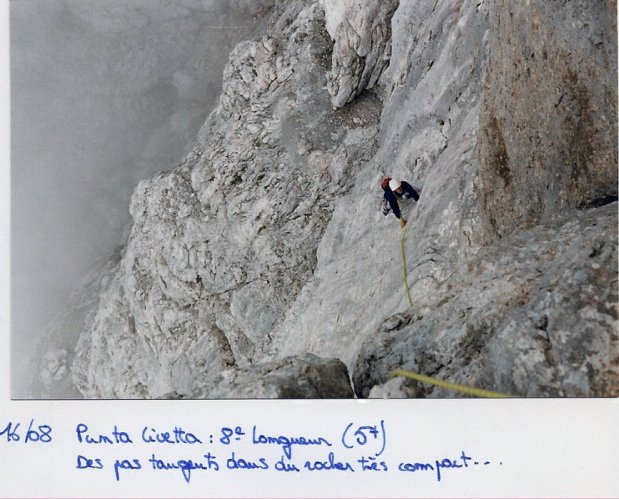 16/08 Punta Civetta : 8e Longueur (5+)
Des pas tangents dans du rocher très compact...